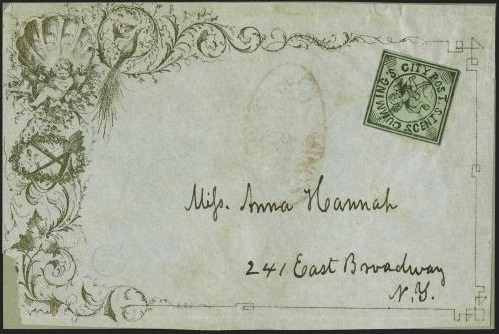 CUMMING'S CITY POST.
2 CENTS
Miss. Anna Hannah
241 East Broadway
N.Y.